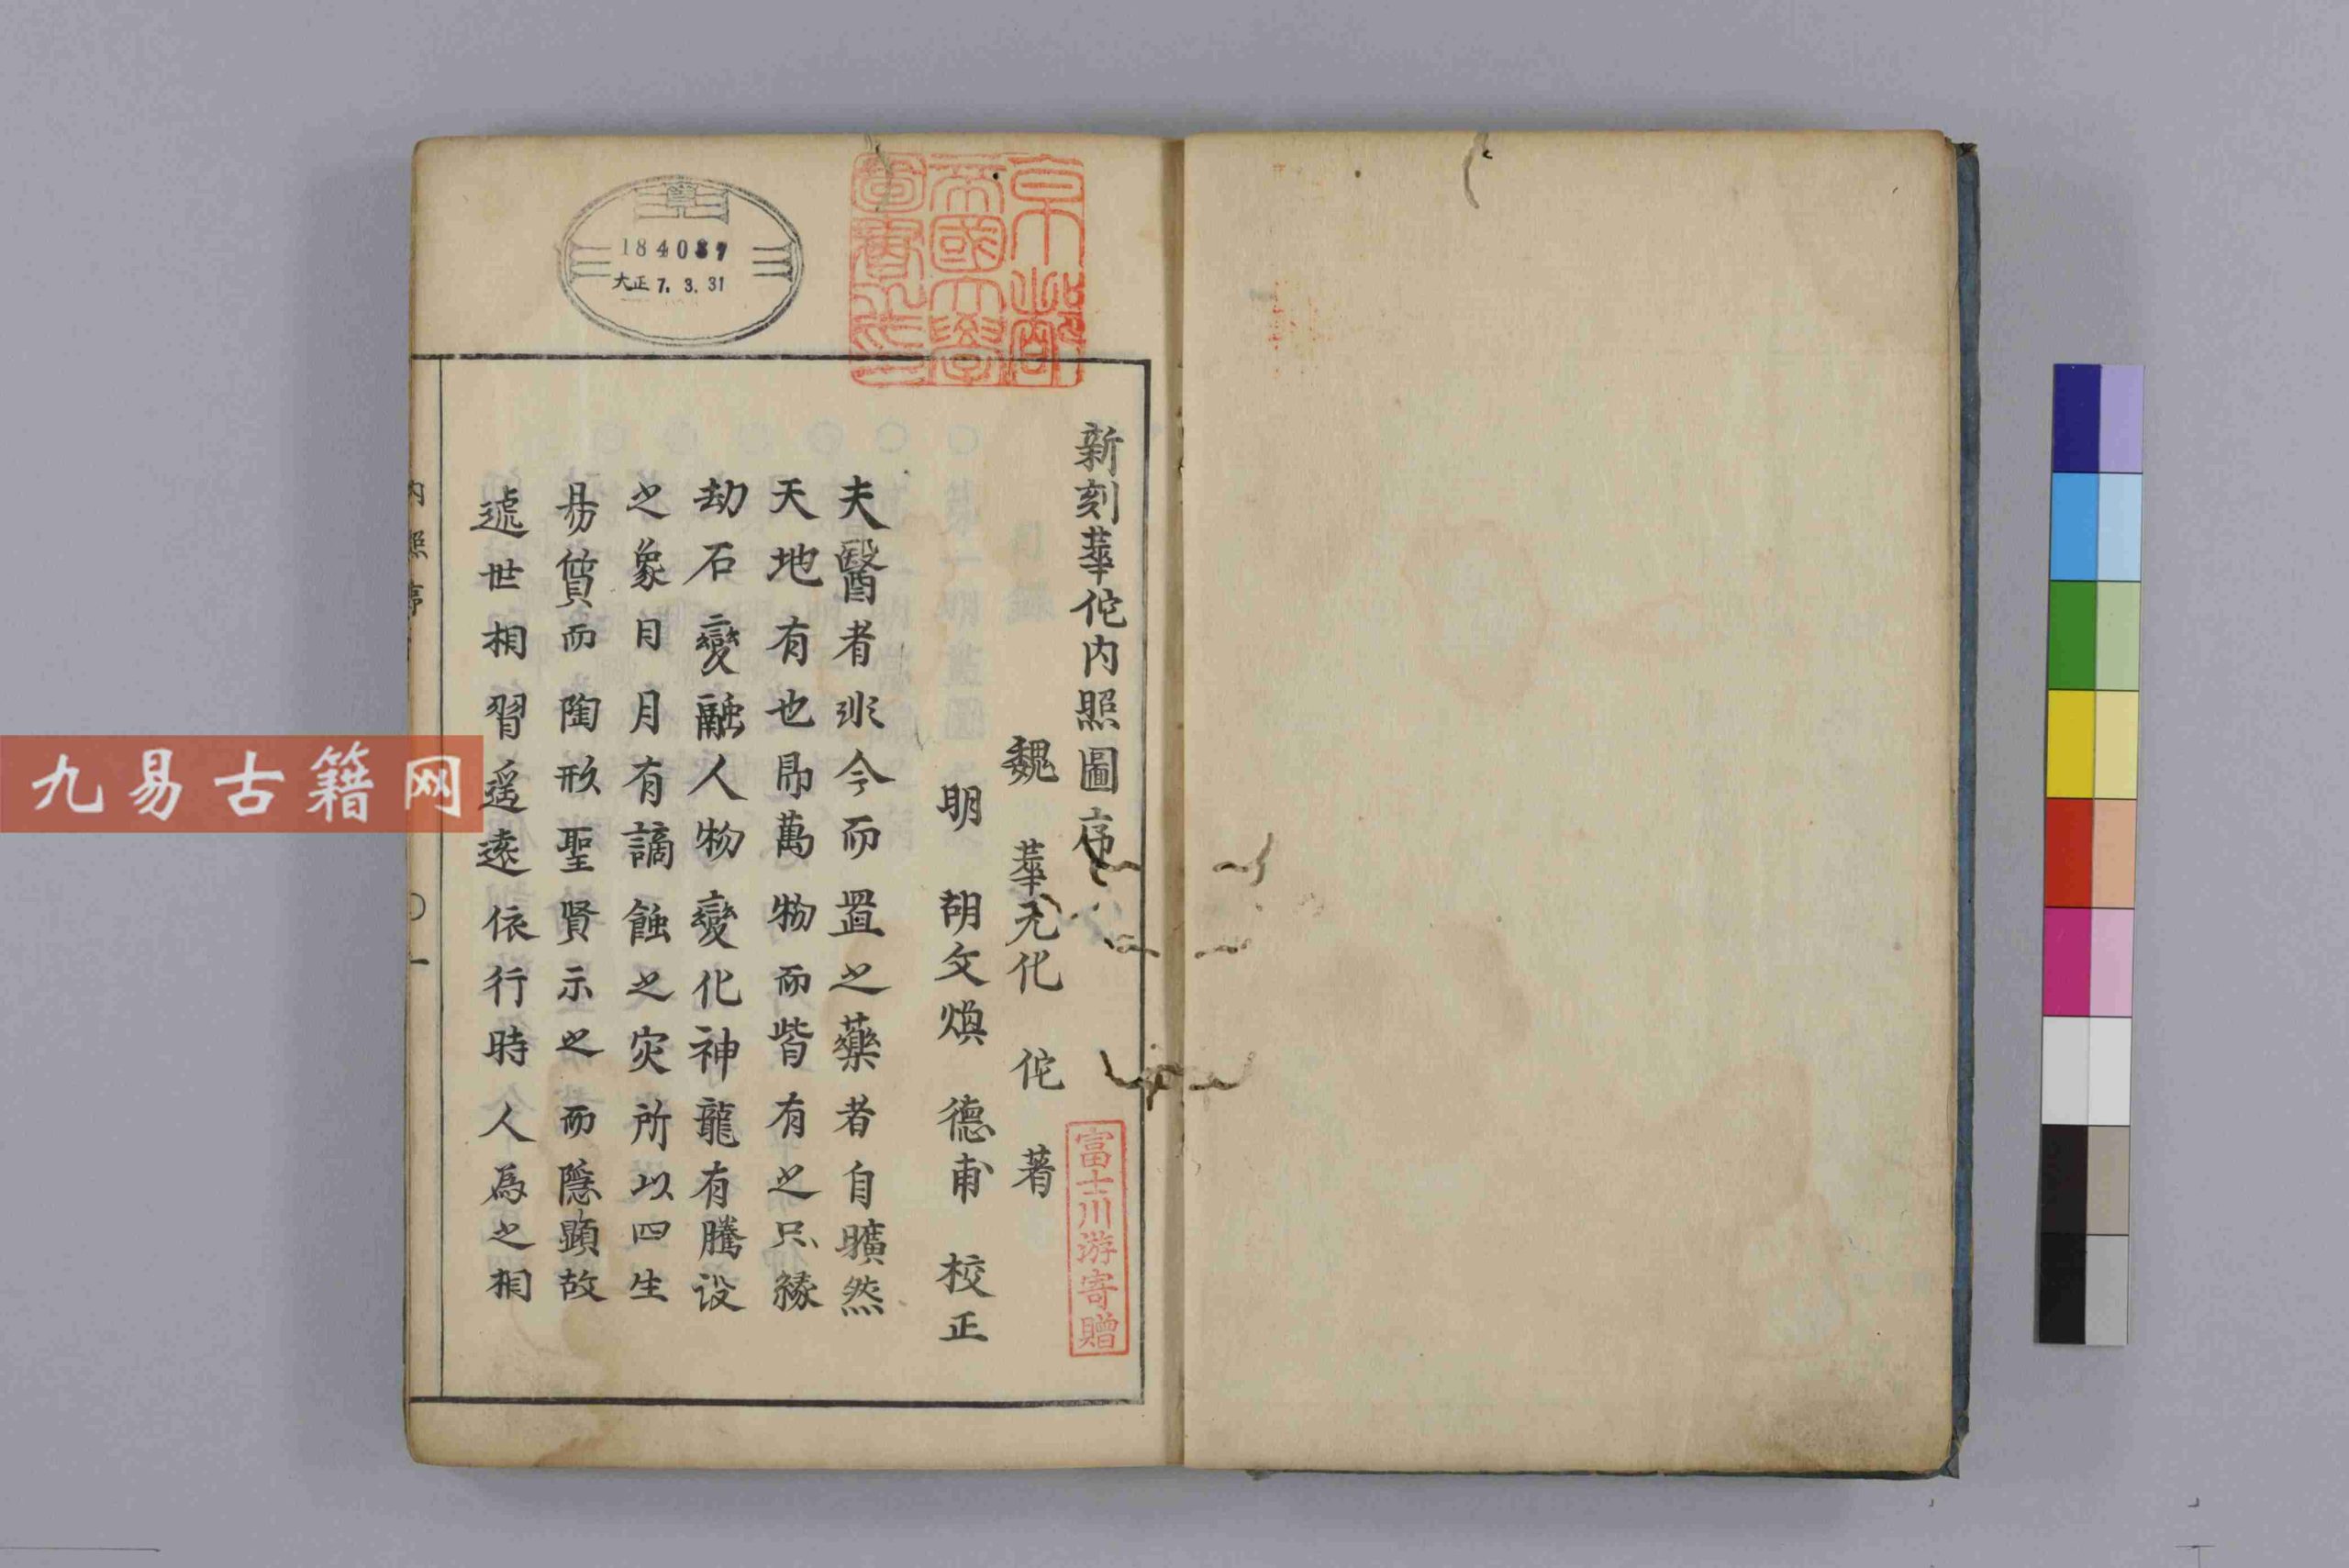 新刻華佗内照圖序
魏 華元化 佗 著
明 胡文煥 德甫 校正
夫醫者非今而置之藥者自曠然
天地有也即萬物而皆有之只緣
劫石變融人物變化神龍有騰設
之象日月有謫蝕之灾所以四生
易質而陶形聖賢示之而隱顯故
遞世相習遥遠依行時人為之相
内照序
〇一
京都
帝國大學
圖書之印
184087
大正 7. 3. 31
富士川游寄贈
九易古籍网